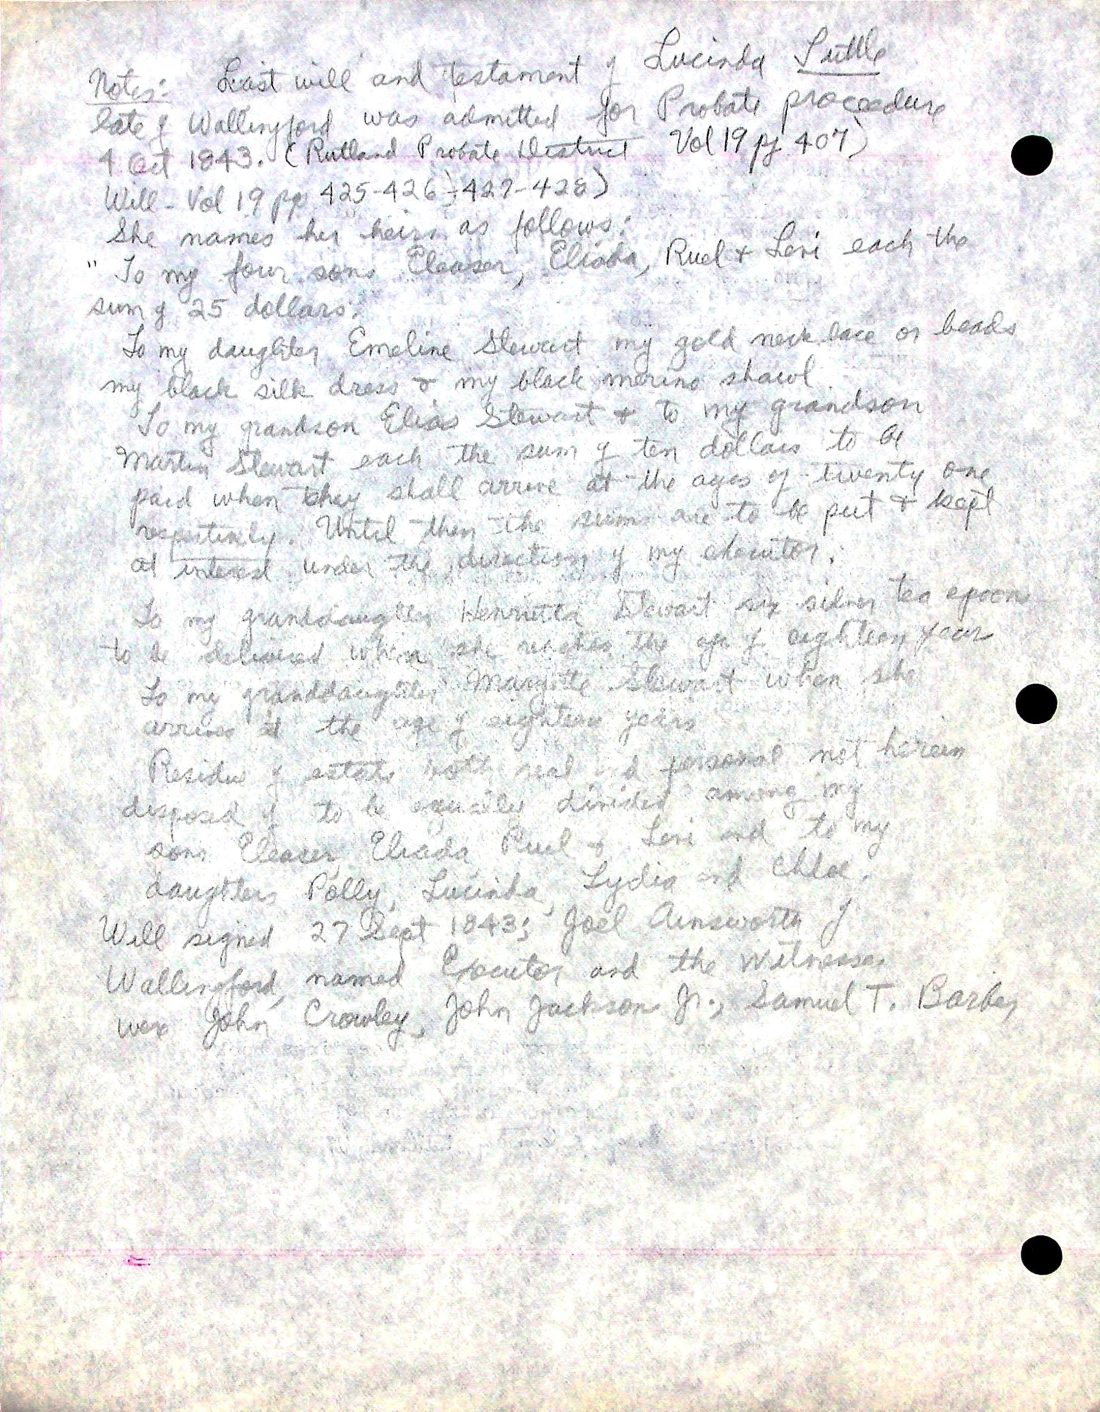 Notes: Last will and testament of Lucinda Suttle
late of Wallingford was admitted for Probate proceedure
4 Oct 1843. (Rutland Probate District Vol 19 pg 407)
Will - Vol 19 pp 425-426 - 427-428)
She names her heirs as follows:
"To my four sons Eleaser, Eliada, Ruel & Levi each the
sum of 25 dollars.
To my daughter Emeline Stewart my gold necklace or beads
my black silk dress & my black merino shawl.
To my grandson Elias Stewart & to my grandson
Martin Stewart each the sum of ten dollars to be
paid when they shall arrive at the ages of twenty one
respectively. Until then the sums are to be put & kept
at interest under the direction of my executor.
To my granddaughter Henrietta Stewart six silver tea spoons
to be delivered when she reaches the age of eighteen years
To my granddaughter Stewart when she
arrives at the age of eighteen years
Residue of estate both real and personal not herein
disposed of to be equally divided among my
sons Eleaser, Eliada Ruel & Levi and to my
daughters Polly, Lucinda, Lydia and Chloe.
Will signed 27 Sept 1843; Joel Ainsworth of
Wallingford, named Executor and the witnesses
were John Crowley, John Jackson Jr., Samuel T. Barber